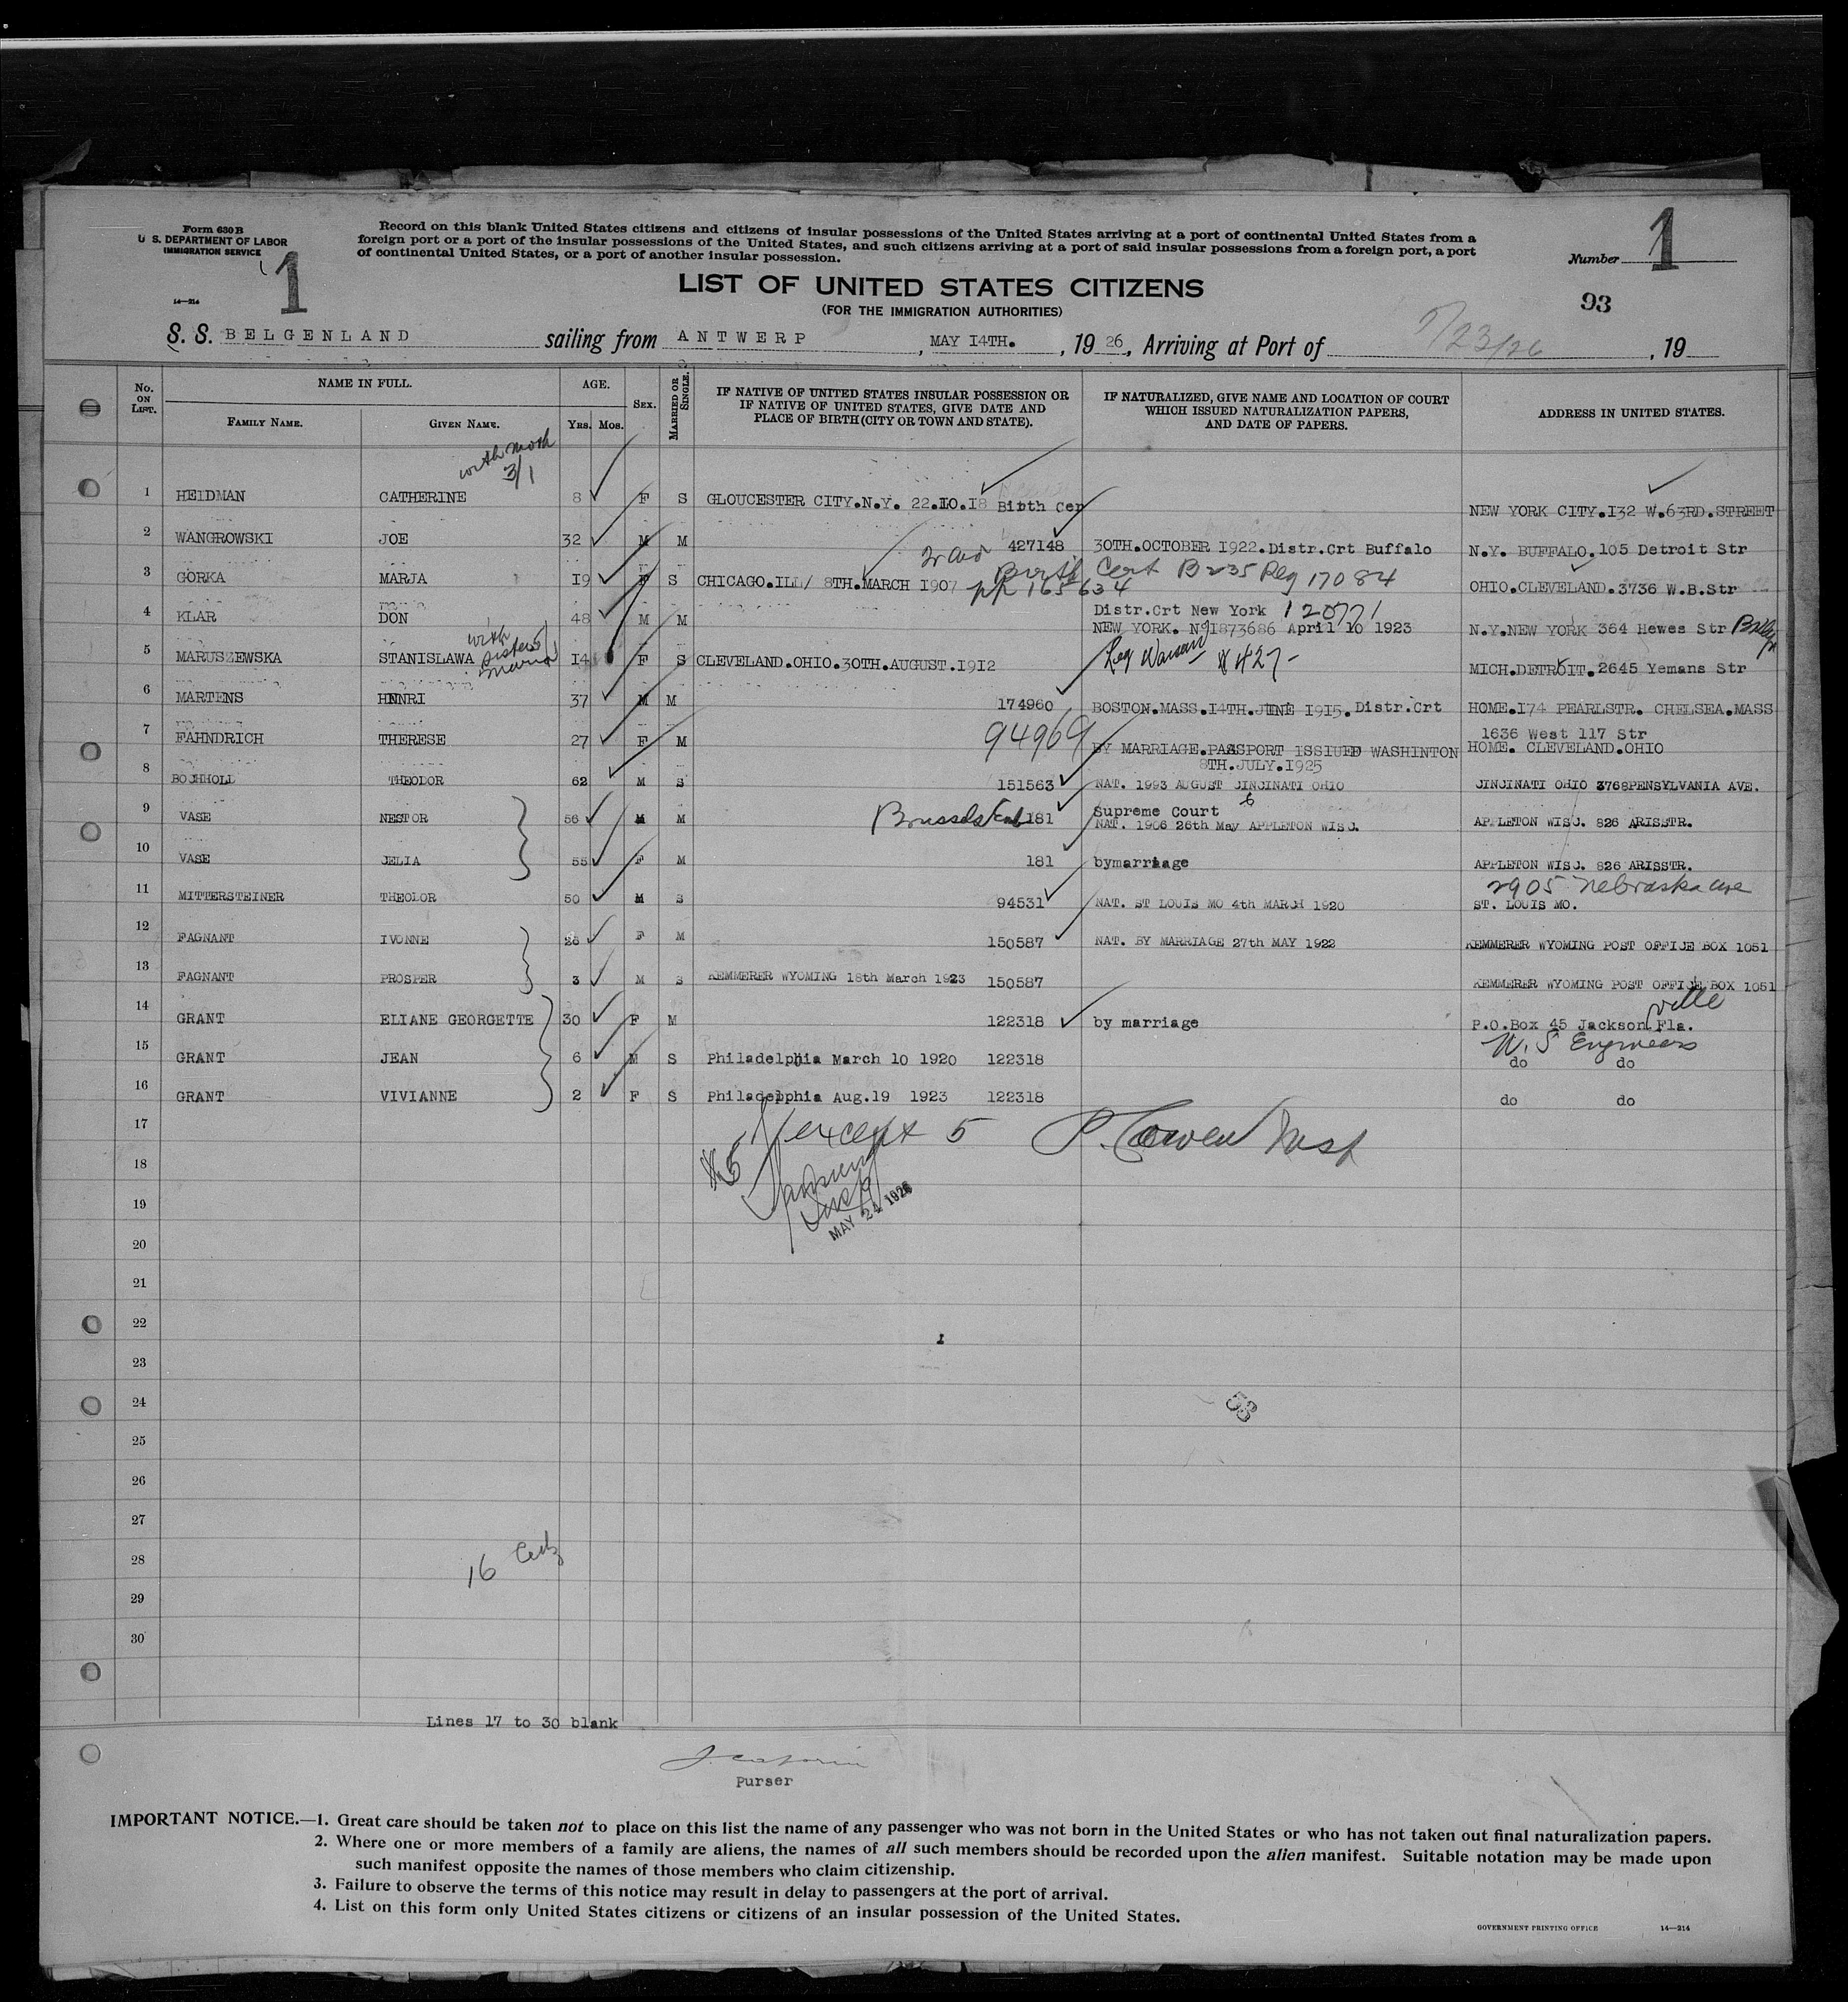 Form 630 B
U. S. DEPARTMENT OF LABOR
IMMIGRATION SERVICE
14—214
1
Record on this blank United States citizens and citizens of insular possessions of the United States arriving at a port of continental United States from a
foreign port or a port of the insular possessions of the United States, and such citizens arriving at a port of said insular possessions from a foreign port, a port
of continental United States, or a port of another insular possession.
Number 1
LIST OF UNITED STATES CITIZENS
(FOR THE IMMIGRATION AUTHORITIES)
93
S. S. BELGENLAND sailing from ANTWERP, MAY I4TH., 19 26, Arriving at Port of 5/23/26, 19
No. ON LIST. NAME IN FULL. AGE. SEX. MARRIED OR SINGLE. IF NATIVE OF UNITED STATES INSULAR POSSESSION OR IF NATIVE OF UNITED STATES, GIVE DATE AND PLACE OF BIRTH (CITY OR TOWN AND STATE). IF NATURALIZED, GIVE NAME AND LOCATION OF COURT WHICH ISSUED NATURALIZATION PAPERS, AND DATE OF PAPERS. ADDRESS IN UNITED STATES.
FAMILY NAME. GIVEN NAME. YRS. MOS.
with moth
3/1
1 HEIDMAN CATHERINE 8 F S GLOUCESTER CITY.N.Y. 22.IO.I8 Birth Cer NEW YORK CITY.I32 W.63RD.STREET
2 WANGROWSKI JOE 32 M M 427148 3OTH.OCTOBER I922.Distr.Crt Buffalo N.Y. BUFFALO.105 Detroit Str
Birth Cert B235 Reg 17084
3 GORKA MARJA I9 F S CHICAGO.ILL/ 8TH.MARCH I907 pp 165634 OHIO.CLEVELAND.3736 W.B.Str
Distr.Crt New York 120771
4 KLAR DON 48 M M NEW YORK. NoI873686 April 10 1923 N.Y.NEW YORK 364 Hewes Str Bklyn
with sister
5 MARUSZEWSKA STANISLAWA I4 F S CLEVELAND.OHIO.3OTH.AUGUST.I9I2 Leg Warsaw #427- MICH.DETROIT.2645 Yemans Str
6 MARTENS HENRI 37 M M 174960 BOSTON.MASS.I4TH.JUNE I9I5.Distr.Crt HOME.I74 PEARLSTR. CHELSEA.MASS
94969 1636 West 117 Str
7 FAHNDRICH THERESE 27 F M BY MARRIAGE.PASSPORT ISSUED WASHINTON HOME. CLEVELAND.OHIO
8TH.JULY.I925
8 BOCHHOLD THEODOR 62 M S 151563 NAT. 1993 AUGUST CINCINATI OHIO CINCINATI OHIO 3768PENSYLVANIA AVE.
Supreme Court
9 VASE NESTOR 56 M M Brussels 181 NAT. 1906 26th May APPLETON WISC. APPLETON WISC. 826 ARISSTR.
10 VASE CELIA 55 F M 181 bymarriage APPLETON WISC. 826 ARISSTR.
2905 Nebraska ave
11 MITTERSTEINER THEODOR 50 M S 94531 NAT. ST LOUIS MO 4th MARCH 1920 ST. LOUIS MO.
12 FAGNANT IVONNE 26 F M 150587 NAT. BY MARRIAGE 27th MAY 1922 KEMMERER WYOMING POST OFFICE BOX 1051
13 FAGNANT PROSPER 3 M S KEMMERER WYOMING 18th March 1923 150587 KEMMERER WYOMING POST OFFICE BOX 1051
14 GRANT ELIANE GEORGETTE 30 F M 122318 by marriage P.O.Box 45 Jacksonville Fla.
U.S Engineers
15 GRANT JEAN 6 M S Philadelphia March 10 1920 122318 do do
16 GRANT VIVIANNE 2 F S Philadelphia Aug.19 1923 122318 do do
17
except 5 P. Cowen Insp
18
#5
19
MAY 24 1926
20
21
22
23
24
93
25
26
27
28
16
29
30
Lines 17 to 30 blank
Purser
IMPORTANT NOTICE.—1. Great care should be taken not to place on this list the name of any passenger who was not born in the United States or who has not taken out final naturalization papers.
2. Where one or more members of a family are aliens, the names of all such members should be recorded upon the alien manifest. Suitable notation may be made upon
such manifest opposite the names of those members who claim citizenship.
3. Failure to observe the terms of this notice may result in delay to passengers at the port of arrival.
4. List on this form only United States citizens or citizens of an insular possession of the United States.
GOVERNMENT PRINTING OFFICE 14—214